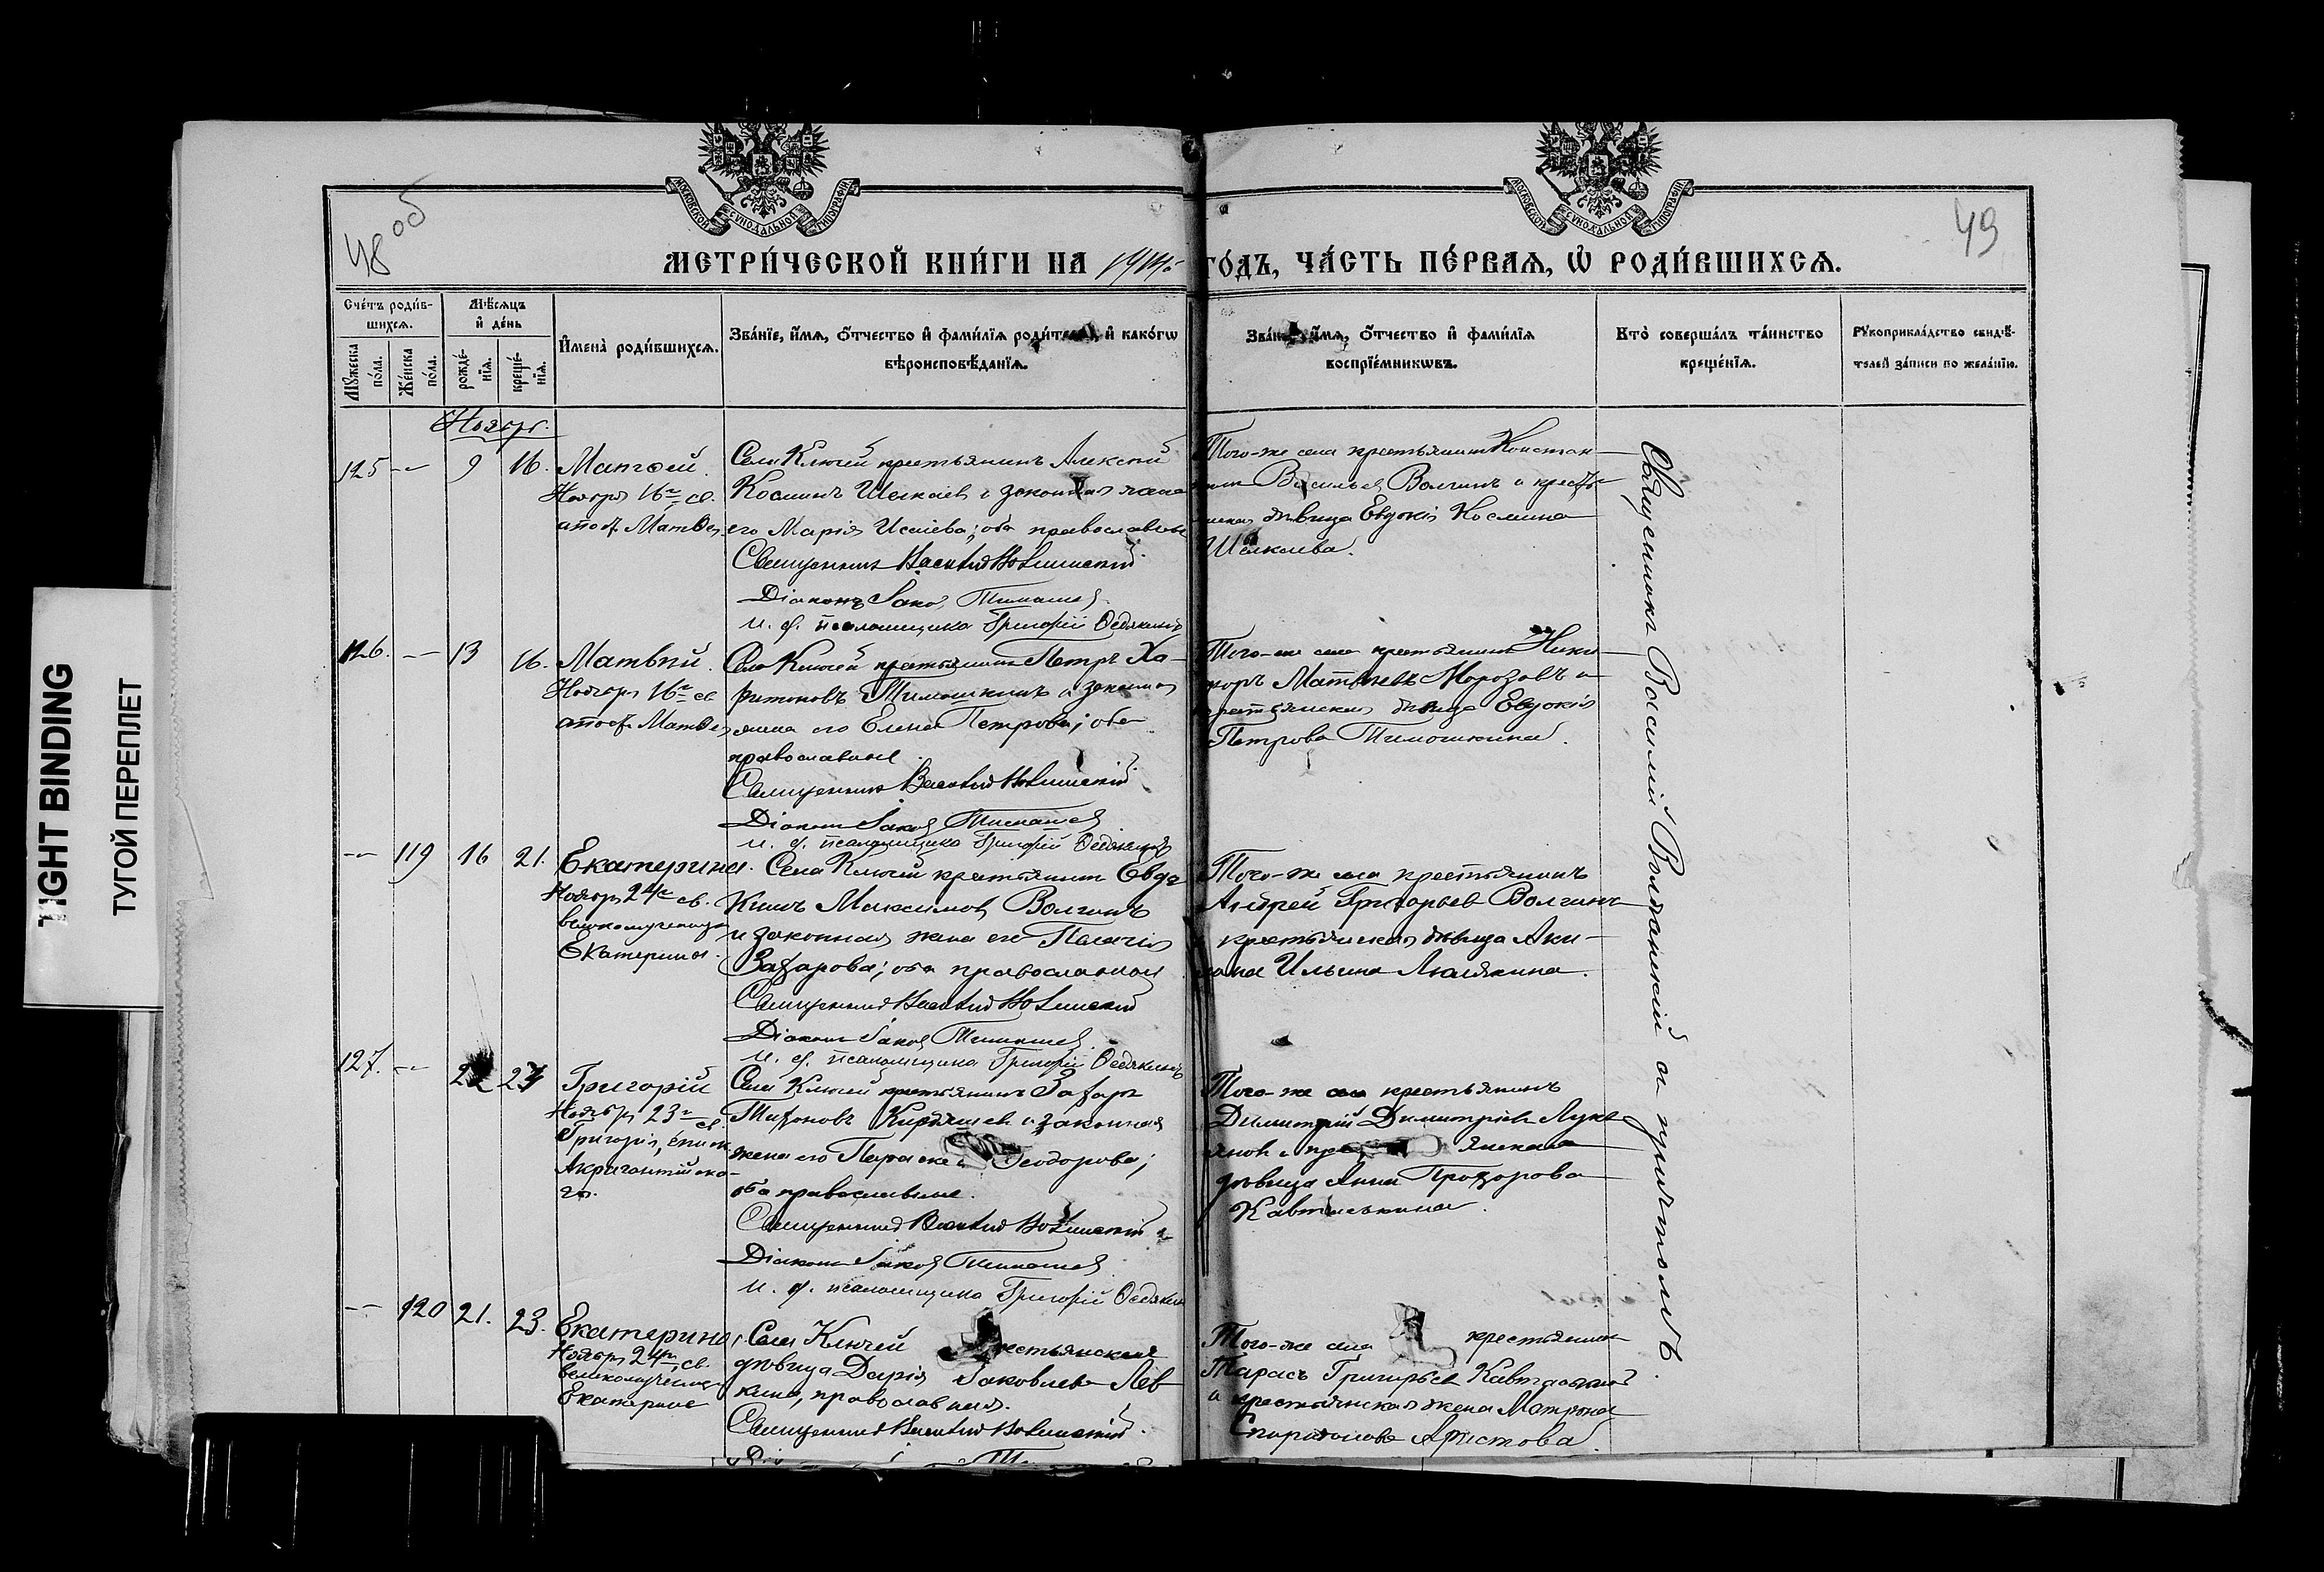 TIGHT BINDING
ТУГОЙ ПЕРЕПЛЕТ
48 об
49
МОСКОВСКОЙ СѴНОДАЛЬНОЙ ТИПОГРАФІИ
МОСКОВСКОЙ СѴНОДАЛЬНОЙ ТИПОГРАФІИ
МЕТРИ́ЧЕСКОЙ КНИ́ГИ НА 1914 ГО́ДЪ, ЧА́СТЬ ПЕ́РВАЯ, Ѡ҆ РОДИ́ВШИХСЯ.
Сче́тъ роди́в-
шихся.
Мꙋ́жеска по́ла.
Же́нска по́ла.
Мѣ́сяцъ
и҆ де́нь
рожде́-
нїя.
креще́-
нїя.
И҆мена̀ роди́вшихся.
Зва́нїе, и҆́мя, ѻ҆́тчество и҆ фами́лїя роди́телей, и҆ како́гѡ
вѣроисповѣ́данїя.
Зва́нїе, и҆́мя, ѻ҆́тчество и҆ фами́лїя
воспрїе́мникѡвъ.
Кто̀ соверша́лъ та́инство
креще́нїя.
Рꙋкоприкла́дство свидѣ́-
телей за́писи по жела́нїю.
Ноябрь.
125 -- 9 16. Матѳей.
Ноября 16го св.
апост. Матѳея.
Села Ключей крестьянинъ Алексій
Косминъ Шелкаевъ и законная жена
его Марія Исаіева; оба православные
Священникъ Василій Волшанскій
Діаконъ Іаковъ Тимашевъ
И. д. псаломщика Григорій Федякинъ
Того-же села крестьянинъ Констан-
тинъ Васильевъ Волгинъ и кресть-
янская дѣвица Евдокія Космина
Шелкаева.
126. -- 13 16. Матвѣй.
Ноября 16го св.
апост. Матѳея
Села Ключей крестьянинъ Петръ Ха-
ритоновъ Тимошкинъ и законная
жена его Елена Петрова; оба
православные.
Священникъ Василій Волшанскій
Діаконъ Іаковъ Тимашевъ
И. д. псаломщика Григорій Федякинъ
Того-же села крестьянинъ Ники-
форъ Матвѣевъ Морозовъ и
крестьянская дѣвица Евдокія
Петрова Тимошкина.
-- 119 16 21. Екатерина.
Ноября 24го св.
великомученицы
Екатерины.
Села Ключей крестьянинъ Евдо-
кимъ Максимовъ Волгинъ
и законная жена его Пелагія
Захарова; оба православные
Священникъ Василій Волшанскій
Діаконъ Іаковъ Тимашевъ
И. д. псаломщика Григорій Федякинъ
Того-же села крестьянинъ
Андрей Григорьевъ Волгинъ
и крестьянская дѣвица Аки-
лина Ильина
127. -- 22 23 Григорій
Ноября 23го св.
Григорія, еписк.
Акрагантійска-
го.
Села Ключей крестьянинъ Захаръ
Тихоновъ и законная
жена его Параскева Ѳеодорова;
оба православные.
Священникъ Василій Волшанскій
Діаконъ Іаковъ Тимашевъ
И. д. псаломщика Григорій Федякинъ
Того-же села крестьянинъ
Димитрій Димитріевъ Лукь-
яновъ и крестьянская
дѣвица Анна Прохорова
Кавтаськина.
-- 120 21. 23. Екатерина
Ноября 24го св.
великомученицы
Екатерины
Села Ключей крестьянская
дѣвица Дарія Іаковлева Лев-
кина, православная.
Священникъ Василій Волшанскій.
Того-же села крестьянинъ
Тарасъ Григорьевъ Кавтаськинъ
и крестьянская жена Матрона
Спиридонова Аристова.
Священникъ Василій Волшанскій съ причтомъ.